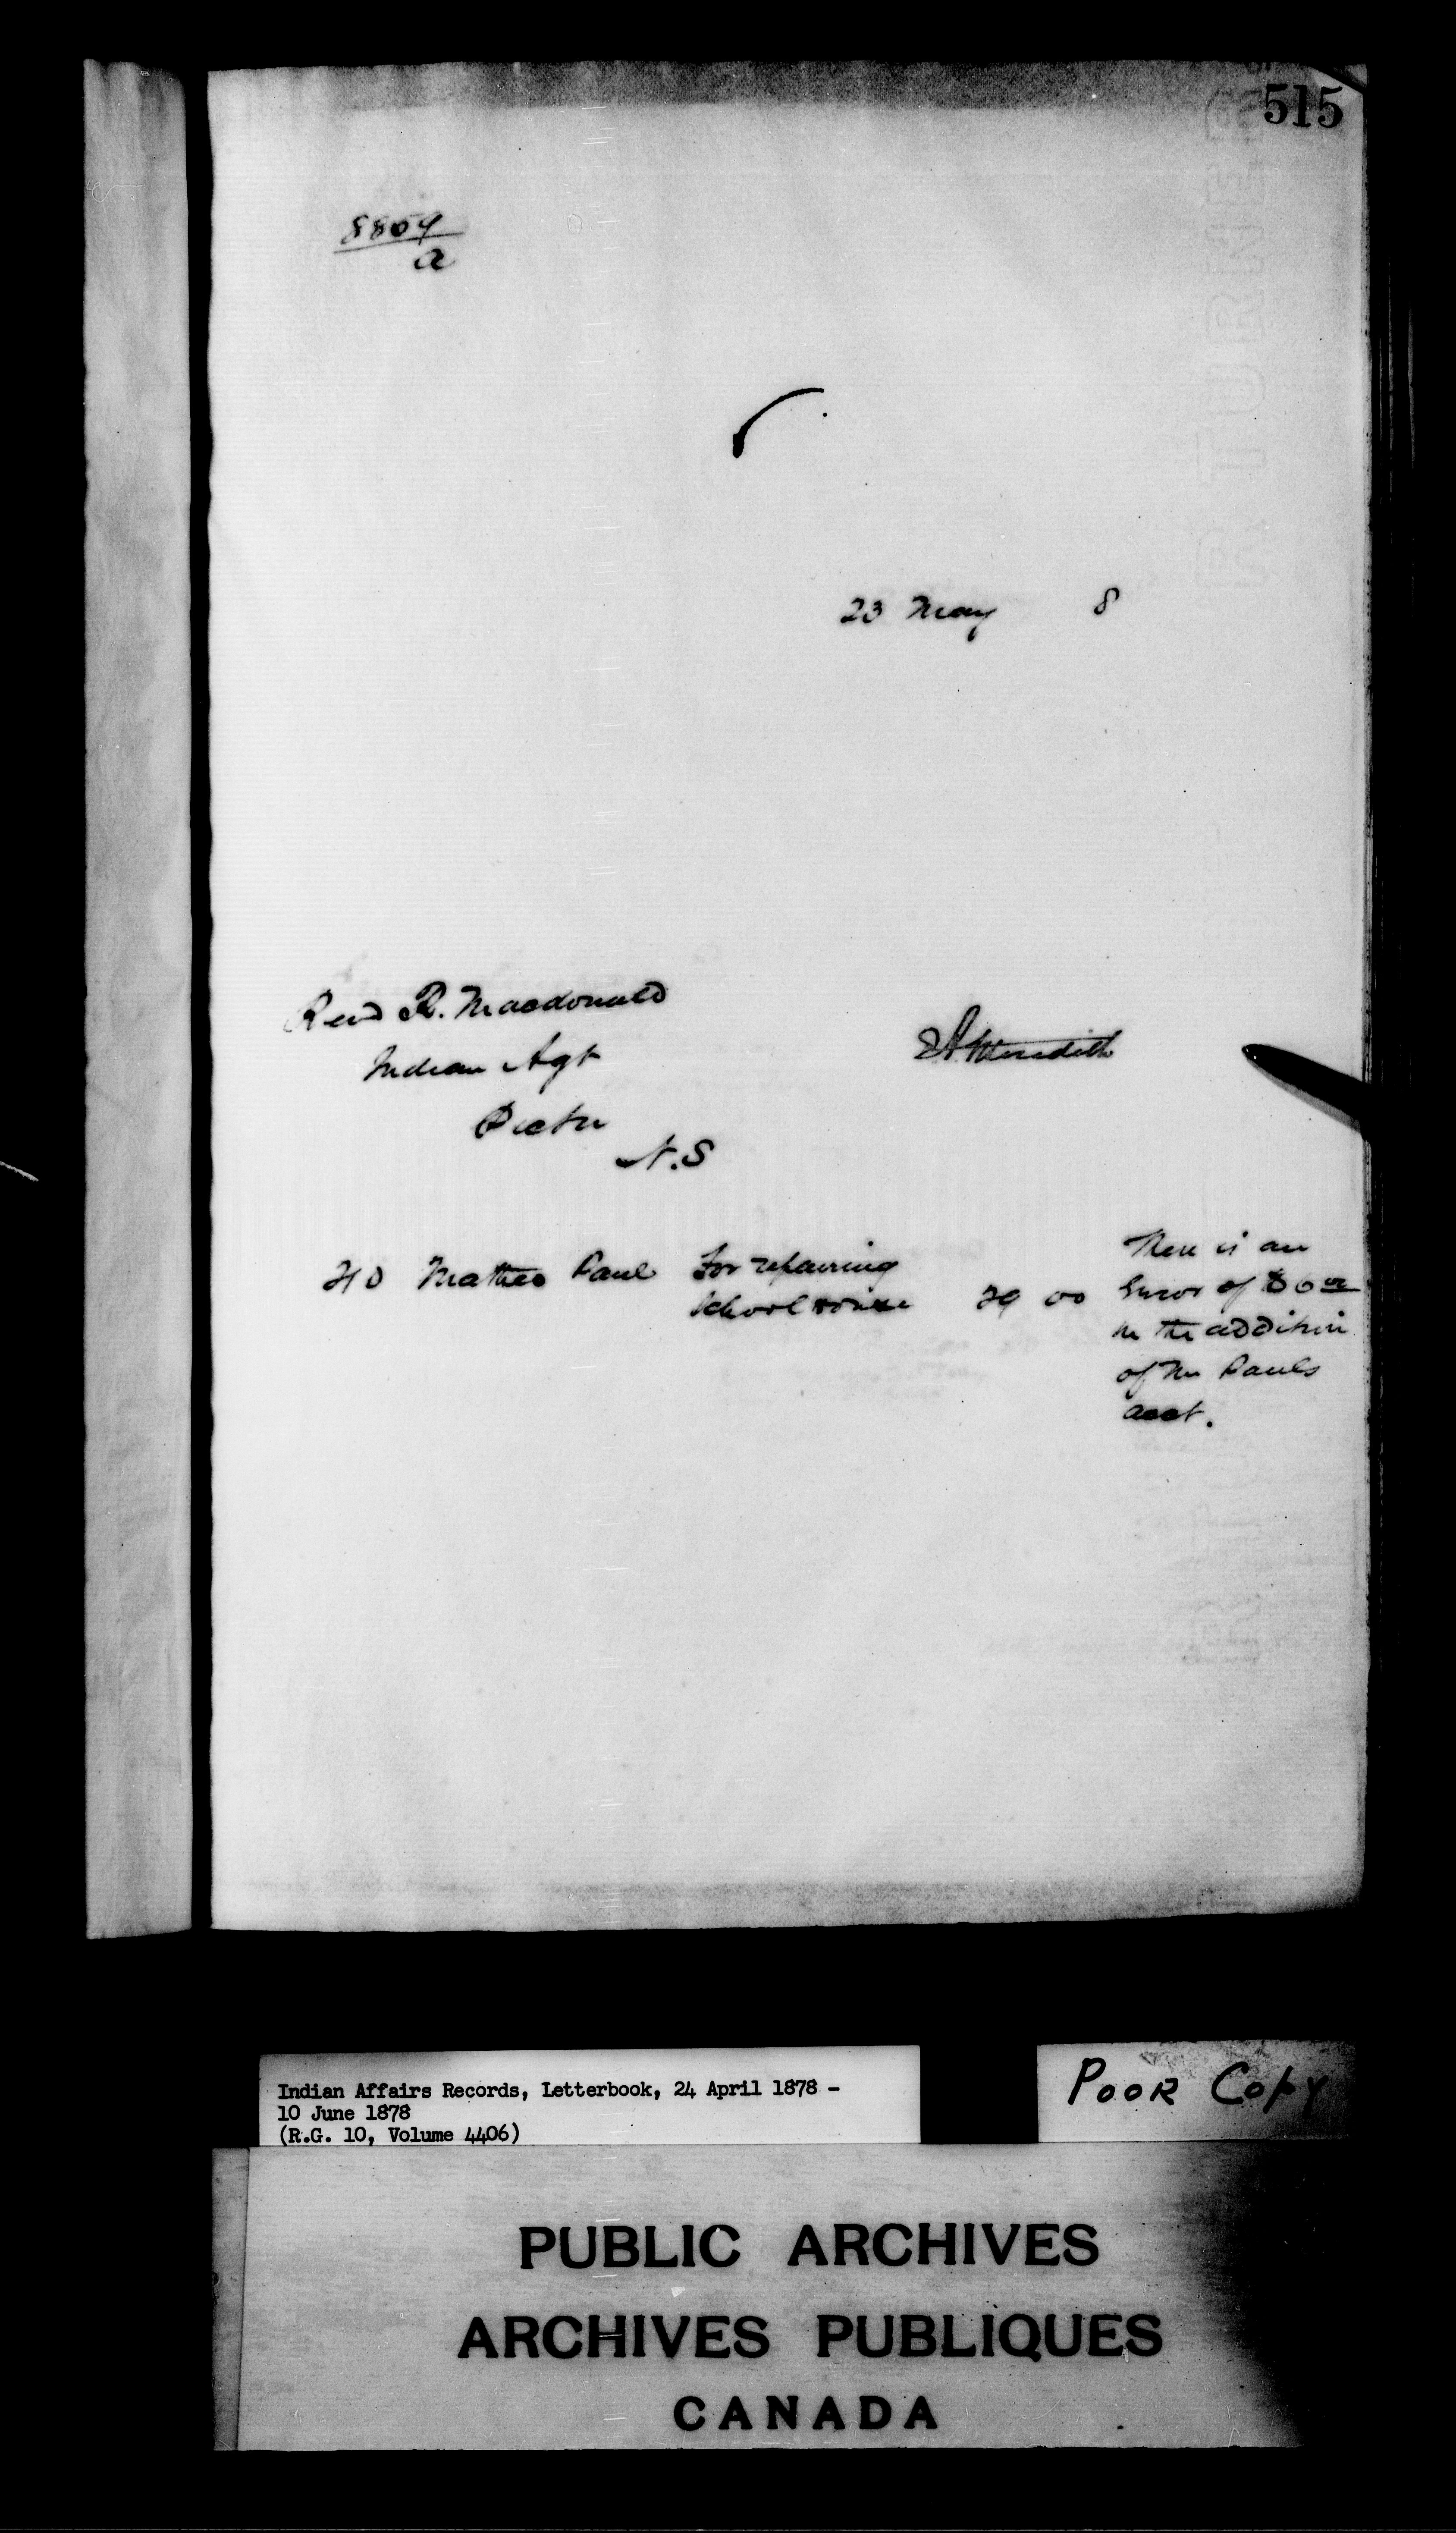 515
8859
a
23 May 8
Revd R. Macdonald
Indian Agt
Pictu
N.S
EA Meredith
210 Matteo Paul For repairing
School House 29 00
There is an
Error of $6 00
in the addition
of Mr Pauls
acct.
Indian Affairs Records, Letterbook, 24 April 1878 -
10 June 1878
(R.G. 10, Volume 4406)
POOR COPY
PUBLIC ARCHIVES
ARCHIVES PUBLIQUES
CANADA